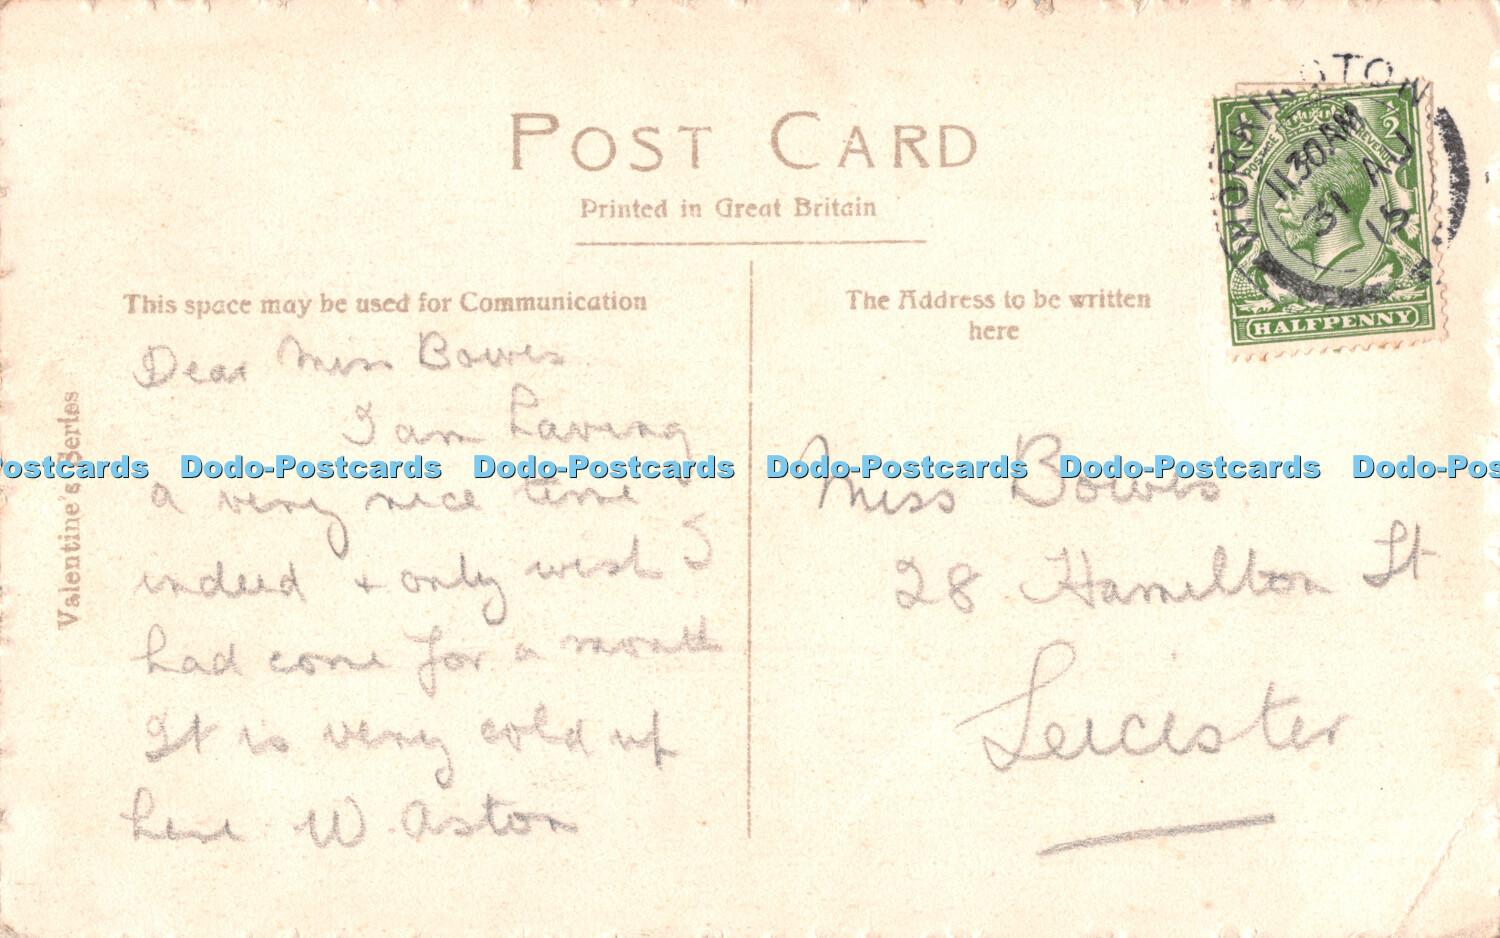 POST CARD
Printed in Great Britain
This space may be used for Communication
The Address to be written
here
Valentine's Series
WORKINGTON
11.30 AM
31 AU
15
POSTAGE REVENUE
½ ½
HALFPENNY
Dear Miss Bowes
I am having
a very nice time
indeed + only wish I
had come for a month
It is very cold up
here W. Aston
Miss Bowes.
28 Hamilton St
Leicester
Dodo-Postcards Dodo-Postcards Dodo-Postcards Dodo-Postcards